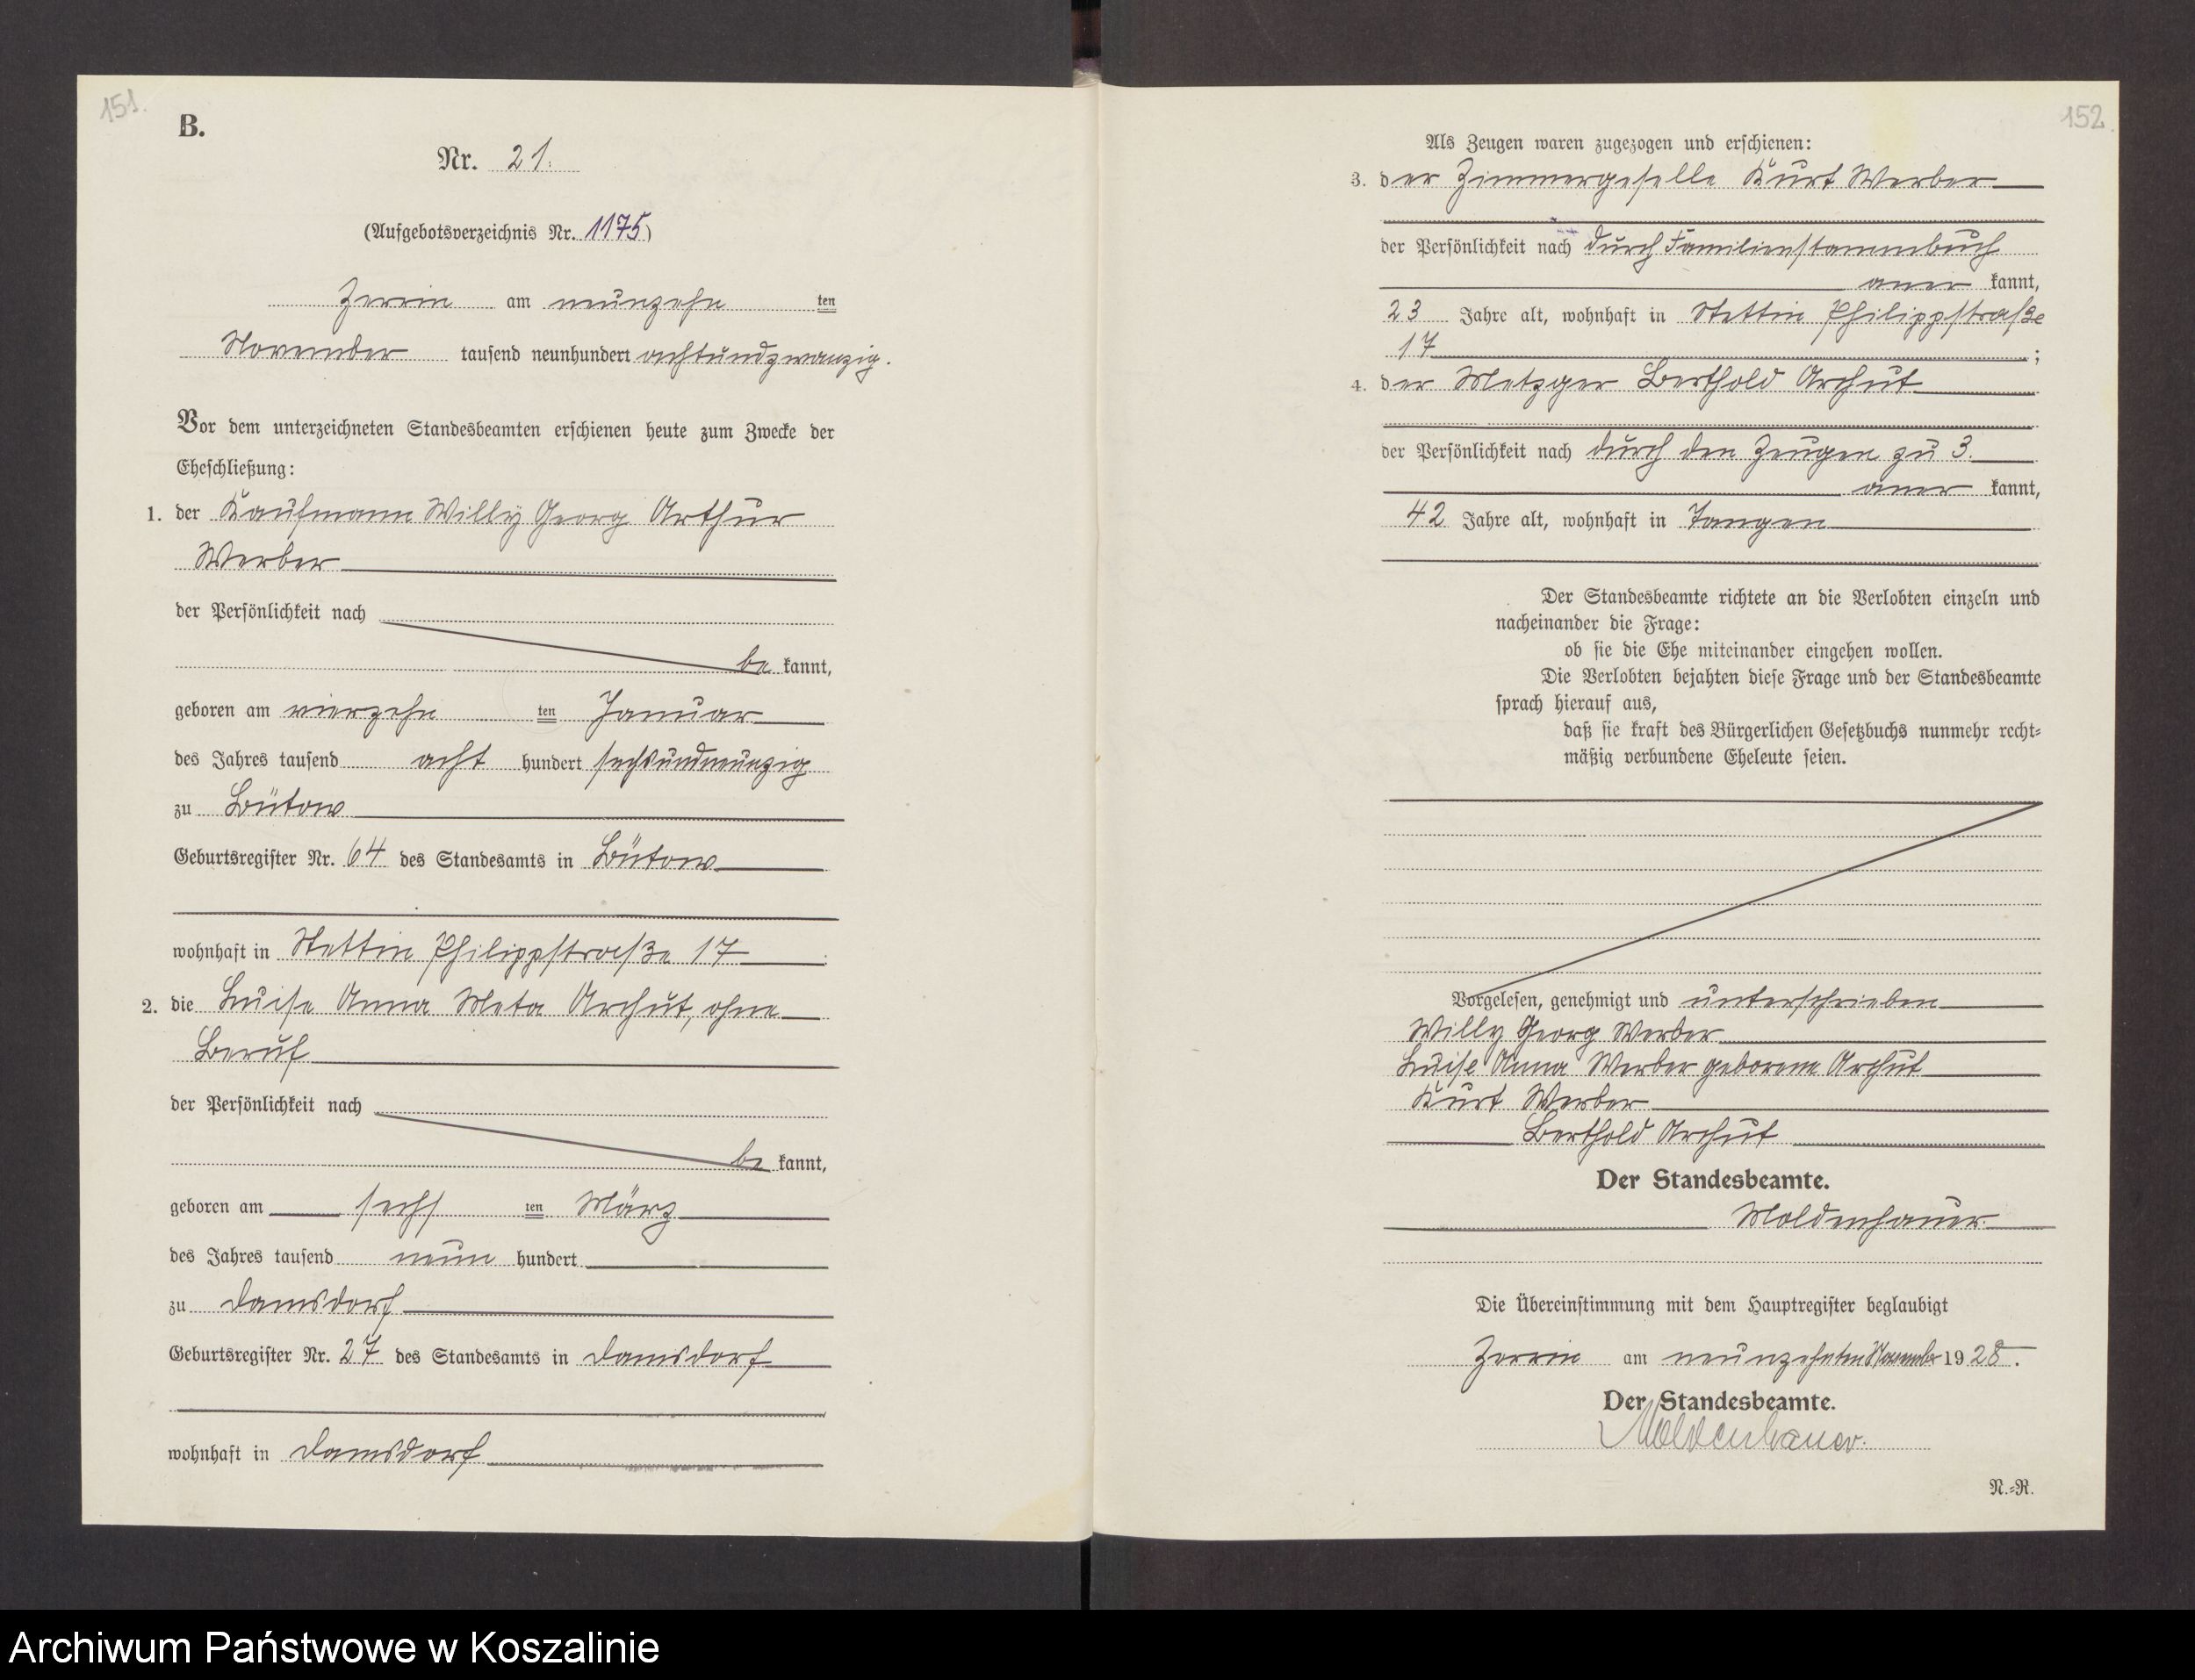 151.
B.
Nr. 21.
(Aufgebotsverzeichnis Nr. 1175)
Zerrin am neunzehn ten
November tausend neunhundert achtundzwanzig.
Vor dem unterzeichneten Standesbeamten erschienen heute zum Zwecke der
Eheschließung:
1. der Kaufmann Willy Georg Arthur
Werber
der Persönlichkeit nach
be kannt,
geboren am vierzehn ten Januar
des Jahres tausend acht hundert sechsundneunzig
zu Bütow
Geburtsregister Nr. 64 des Standesamts in Bütow
wohnhaft in Stettin Philippstraße 17 ;
2. die Luise Anna Meta Archut, ohne
Beruf
der Persönlichkeit nach
be kannt,
geboren am sechs ten März
des Jahres tausend neun hundert
zu Damsdorf
Geburtsregister Nr. 27 des Standesamts in Damsdorf
wohnhaft in Damsdorf
152.
Als Zeugen waren zugezogen und erschienen:
3. der Zimmergeselle Kurt Werber
der Persönlichkeit nach durch Familienstammbuch
aner kannt,
23 Jahre alt, wohnhaft in Stettin Philippstraße
17 ;
4. der Metzger Berthold Archut
der Persönlichkeit nach durch den Zeugen zu 3.
aner kannt,
42 Jahre alt, wohnhaft in Tangen
Der Standesbeamte richtete an die Verlobten einzeln und
nacheinander die Frage:
ob sie die Ehe miteinander eingehen wollen.
Die Verlobten bejahten diese Frage und der Standesbeamte
sprach hierauf aus,
daß sie kraft des Bürgerlichen Gesetzbuchs nunmehr recht-
mäßig verbundene Eheleute seien.
Vorgelesen, genehmigt und unterschrieben
Willy Georg Werber
Luise Anna Werber geborene Archut
Kurt Werber
Berthold Archut
Der Standesbeamte.
Moldenhauer.
Die Übereinstimmung mit dem Hauptregister beglaubigt
Zerrin am neunzehnten November 19 28.
Der Standesbeamte.
Moldenhauer.
N.-R.
Archiwum Państwowe w Koszalinie